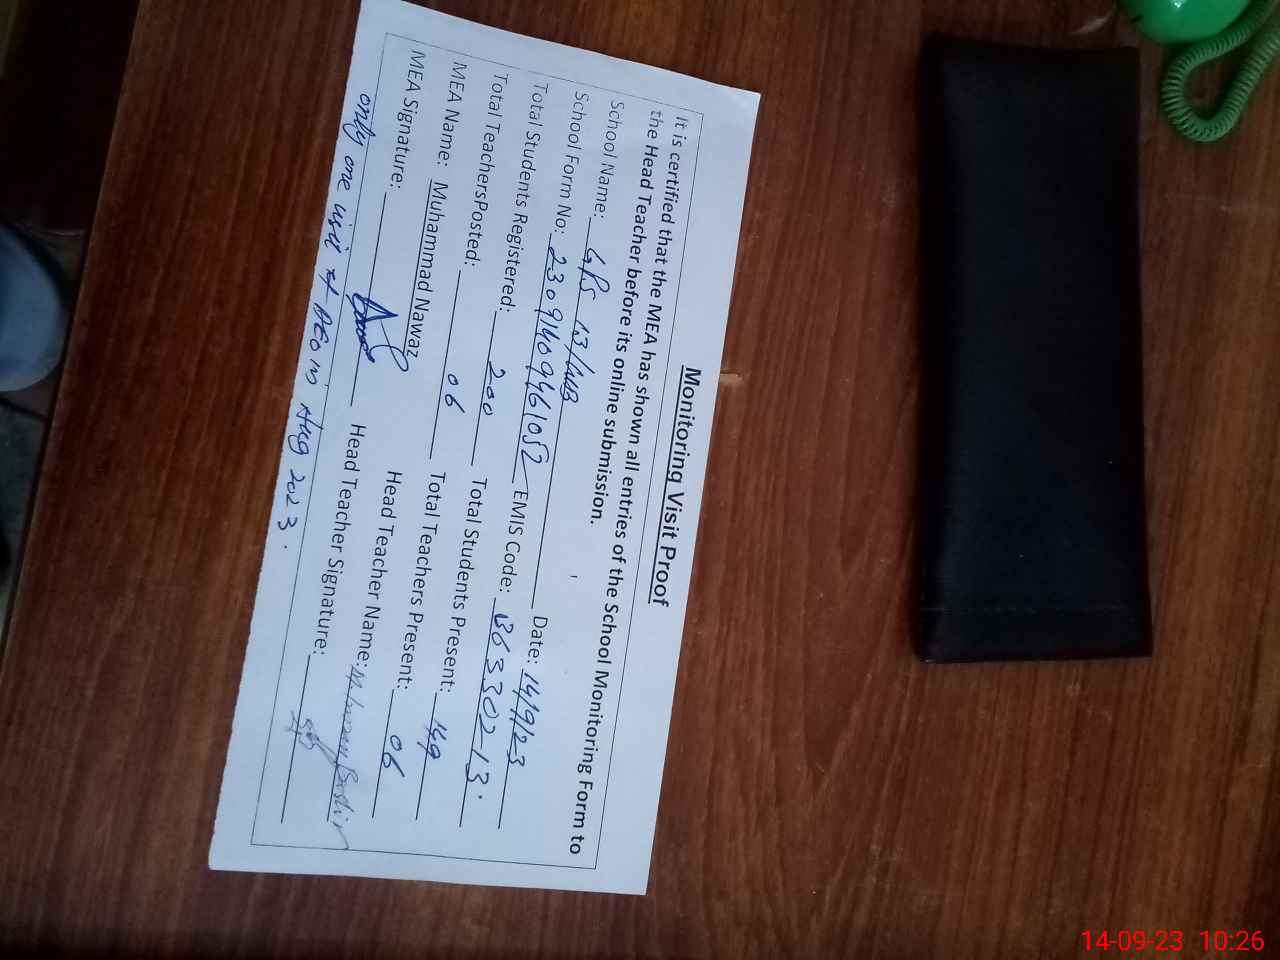 Monitoring Visit Proof
It is certified that the MEA has shown all entries of the School Monitoring Form to
the Head Teacher before its online submission.
School Name: GPS 13/ Date: 14/9/23
School Form No: 23091409461052 EMIS Code: 36330213.
Total Students Registered: 200 Total Students Present: 149
Total TeachersPosted: 06 Total Teachers Present: 06
MEA Name: Muhammad Nawaz Head Teacher Name: Bashir
MEA Signature: Head Teacher Signature:
only one visit of AEO in Aug 2023.
14-09-23 10:26